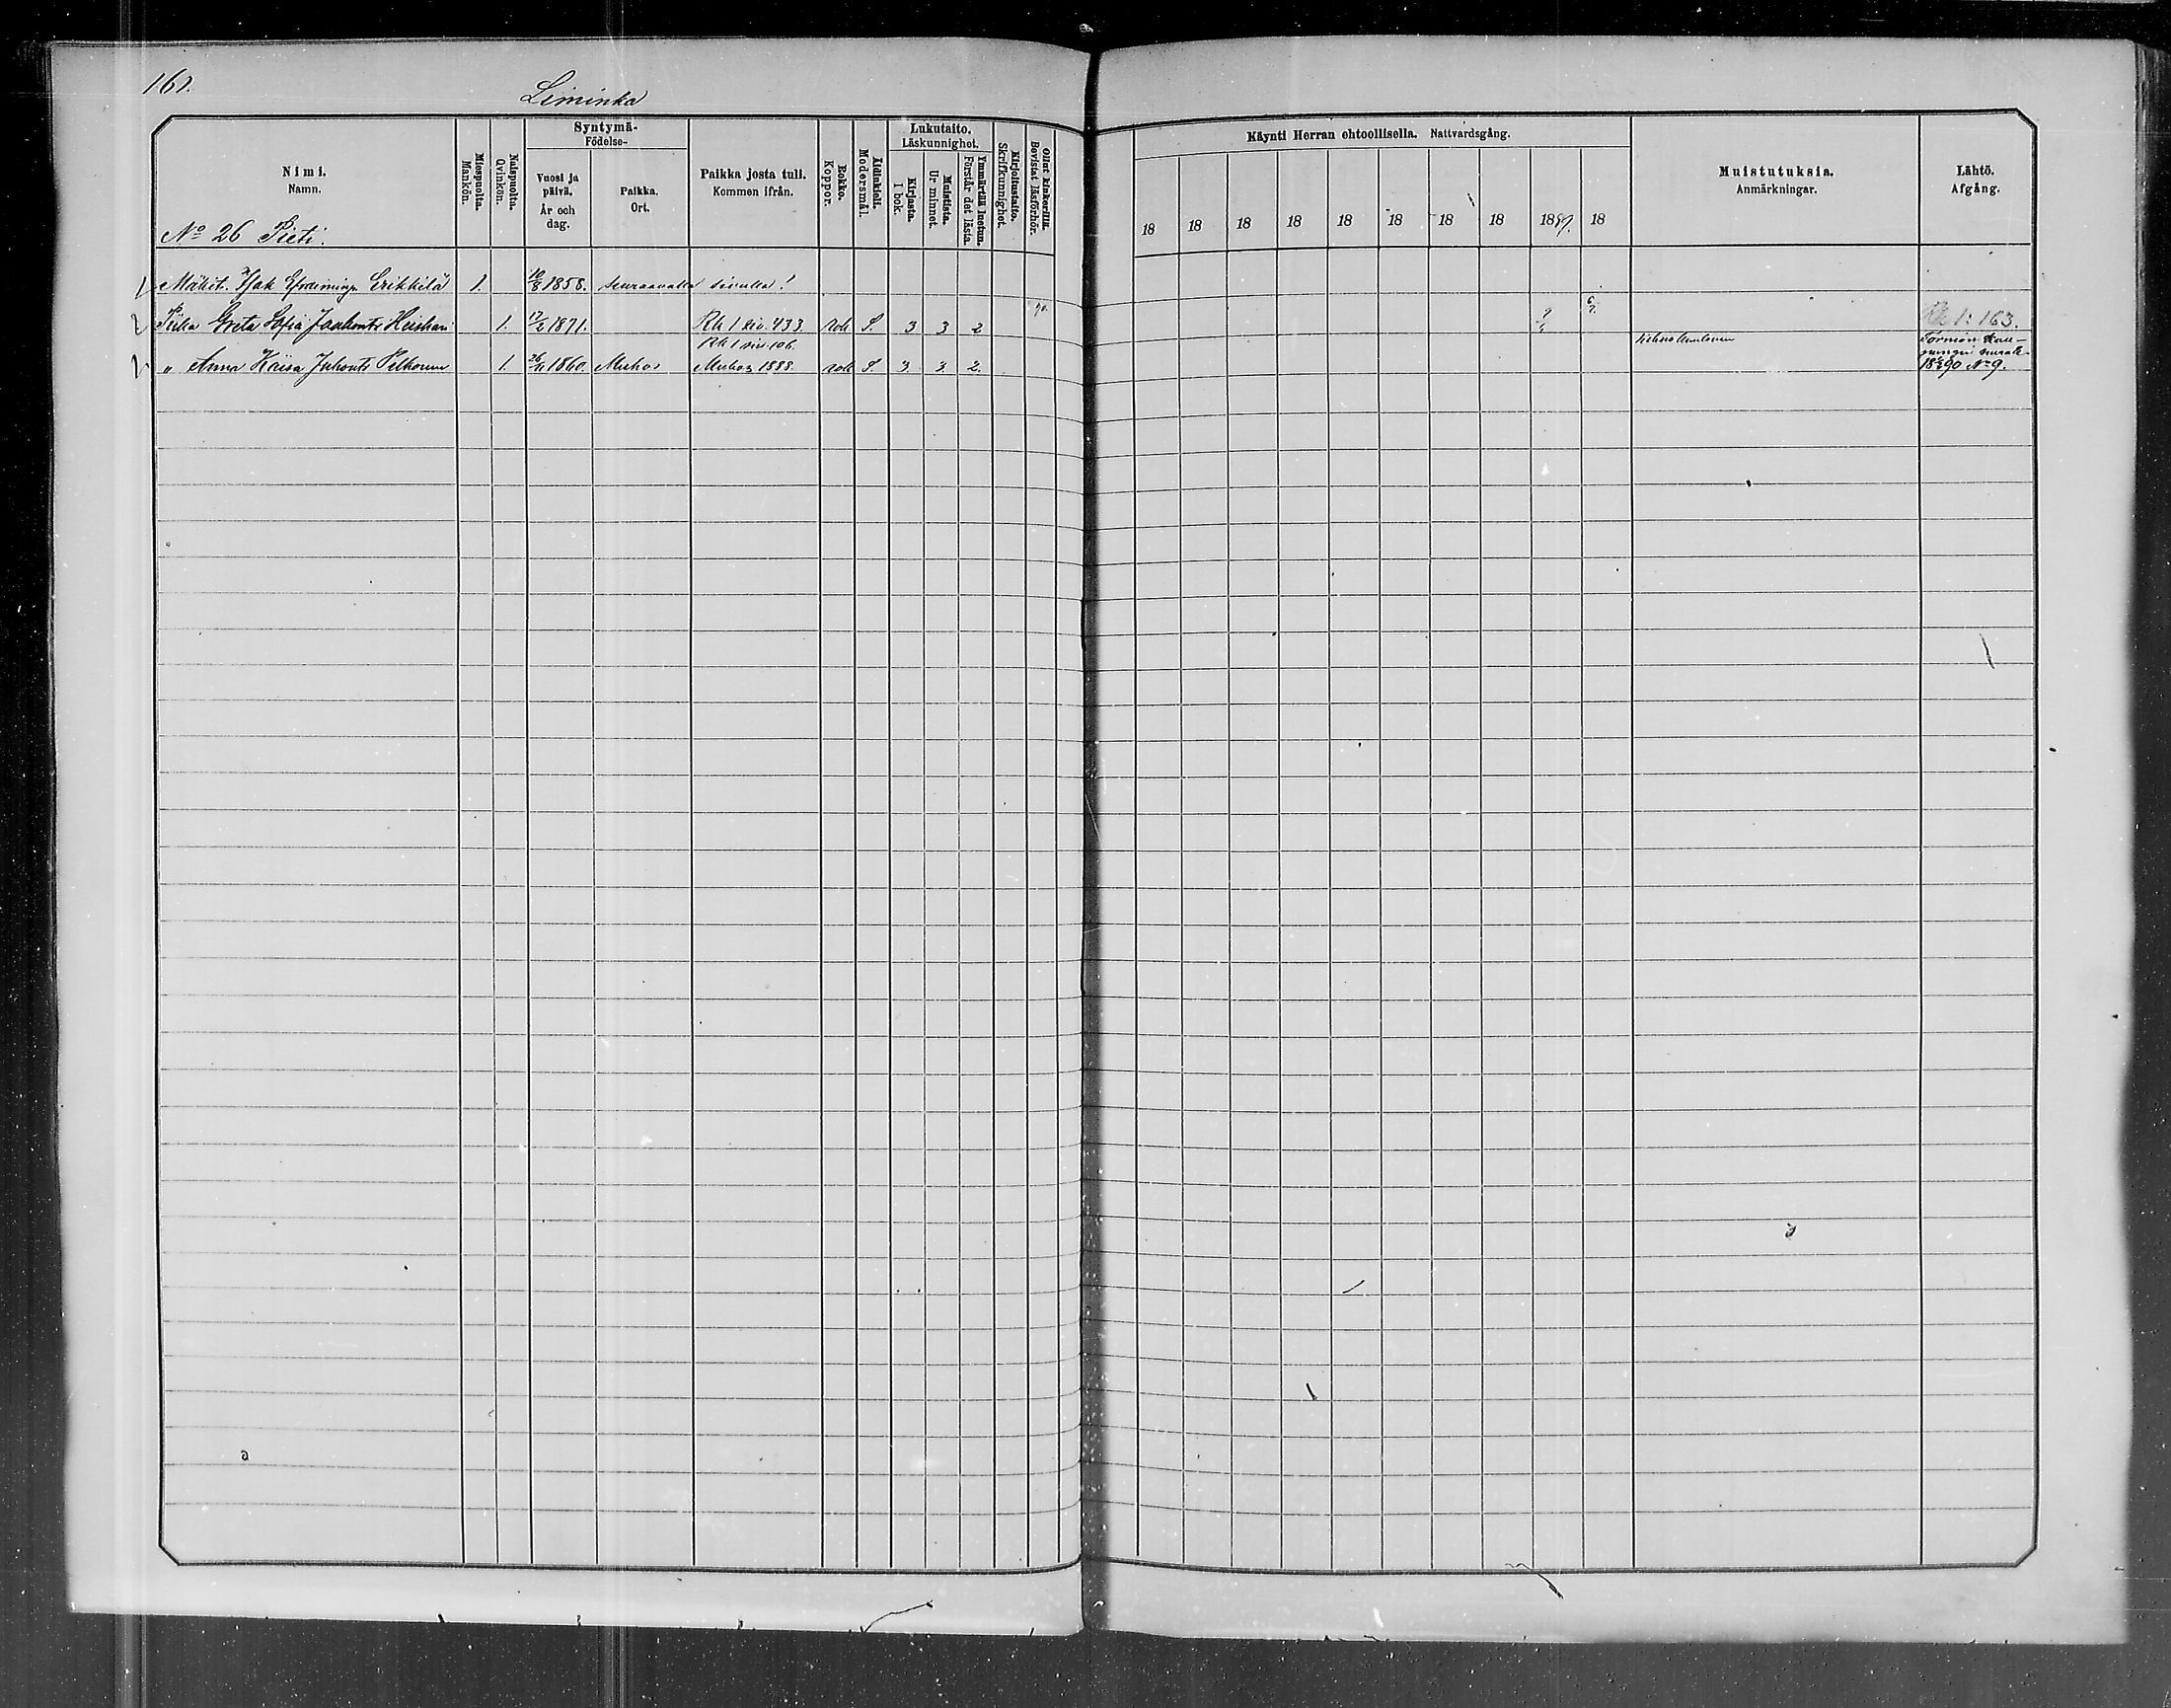 161.
Liminka
Nimi.
Namn.
Miespuolta.
Mankön.
Naispuolta.
Qvinkön.
Syntymä-
Födelse-
Vuosi ja
päivä.
År och
dag.
Paikka.
Ort.
Paikka josta tuli.
Kommen ifrån.
Rokko.
Koppor.
Äidinkieli.
Modersmål.
Lukutaito.
Läskunnighet.
Kirjasta.
I bok.
Muistista.
Ur minnet.
Ymmärtää luetun.
Förstår det lästa.
Kirjoitustaito.
Skrifkunnighet.
Ollut kinkerillä.
Bevistat läsförhör.
Käynti Herran ehtoollisella. Nattvardsgång.
18 18 18 18 18 18 18 18 1889. 18
Muistutuksia.
Anmärkningar.
Lähtö.
Afgång.
No 26 Pieti.
Mäkit. Isak Efraiminp. Erikkilä 1. 1858. seuraavalla sivulla!
Piika Greta Sofia Jaakont. 1. 17/2 1871. Rk 1 siv. 433. rok S. 3 3 2 90. Rk 1: 163.
Rk 1 siv. 106.
" Anna Kaisa Juhont. Pelkonen 1. 1860. Muhos Muhos 1888. rok S. 3. 3. 2. 1890 No 9.